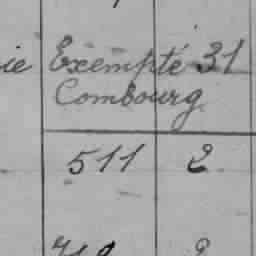 ie Exempté 31
Combourg
511 2